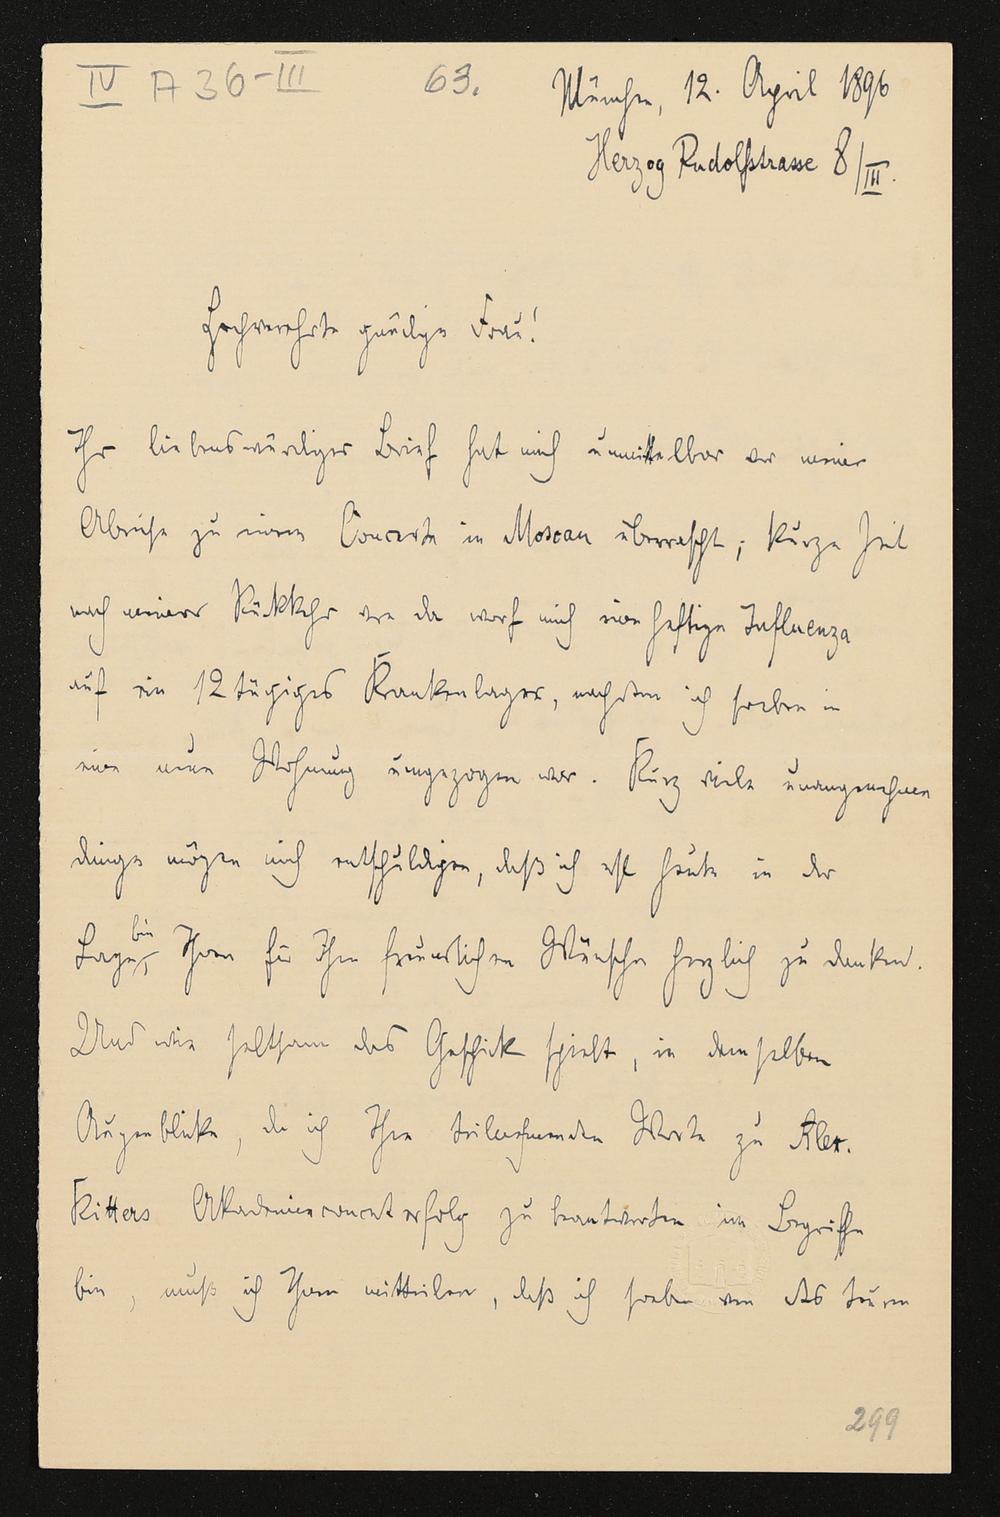 IV A 36-III 63.
München, 12. April 1896
Herzog Rudolfstrasse 8/III.
Hochverehrte gnädige Frau!
Ihr liebenswürdiger Brief hat mich unmittelbar vor meiner
Abreise zu einem Concerte in Moscau überrascht; kurze Zeit
nach meiner Rückkehr von da warf mich eine heftige Influenza
auf ein 12 tägiges Krankenlager, nachdem ich soeben in
eine neue Wohnung umgezogen war. Kurz viele unangenehmen
Dinge mögen mich entschuldigen, daß ich erst heute in der
Lage bin, Ihnen für Ihre freundlichen Wünsche herzlich zu danken.
Und wie seltsam das Geschick spielt, in demselben
Augenblicke, da ich Ihre teilnehmenden Worte zu Alex.
Ritters Akademieconcerterfolg zu beantworten im Begriffe
bin, muß ich Ihnen mitteilen, daß ich soeben von des teuren
299